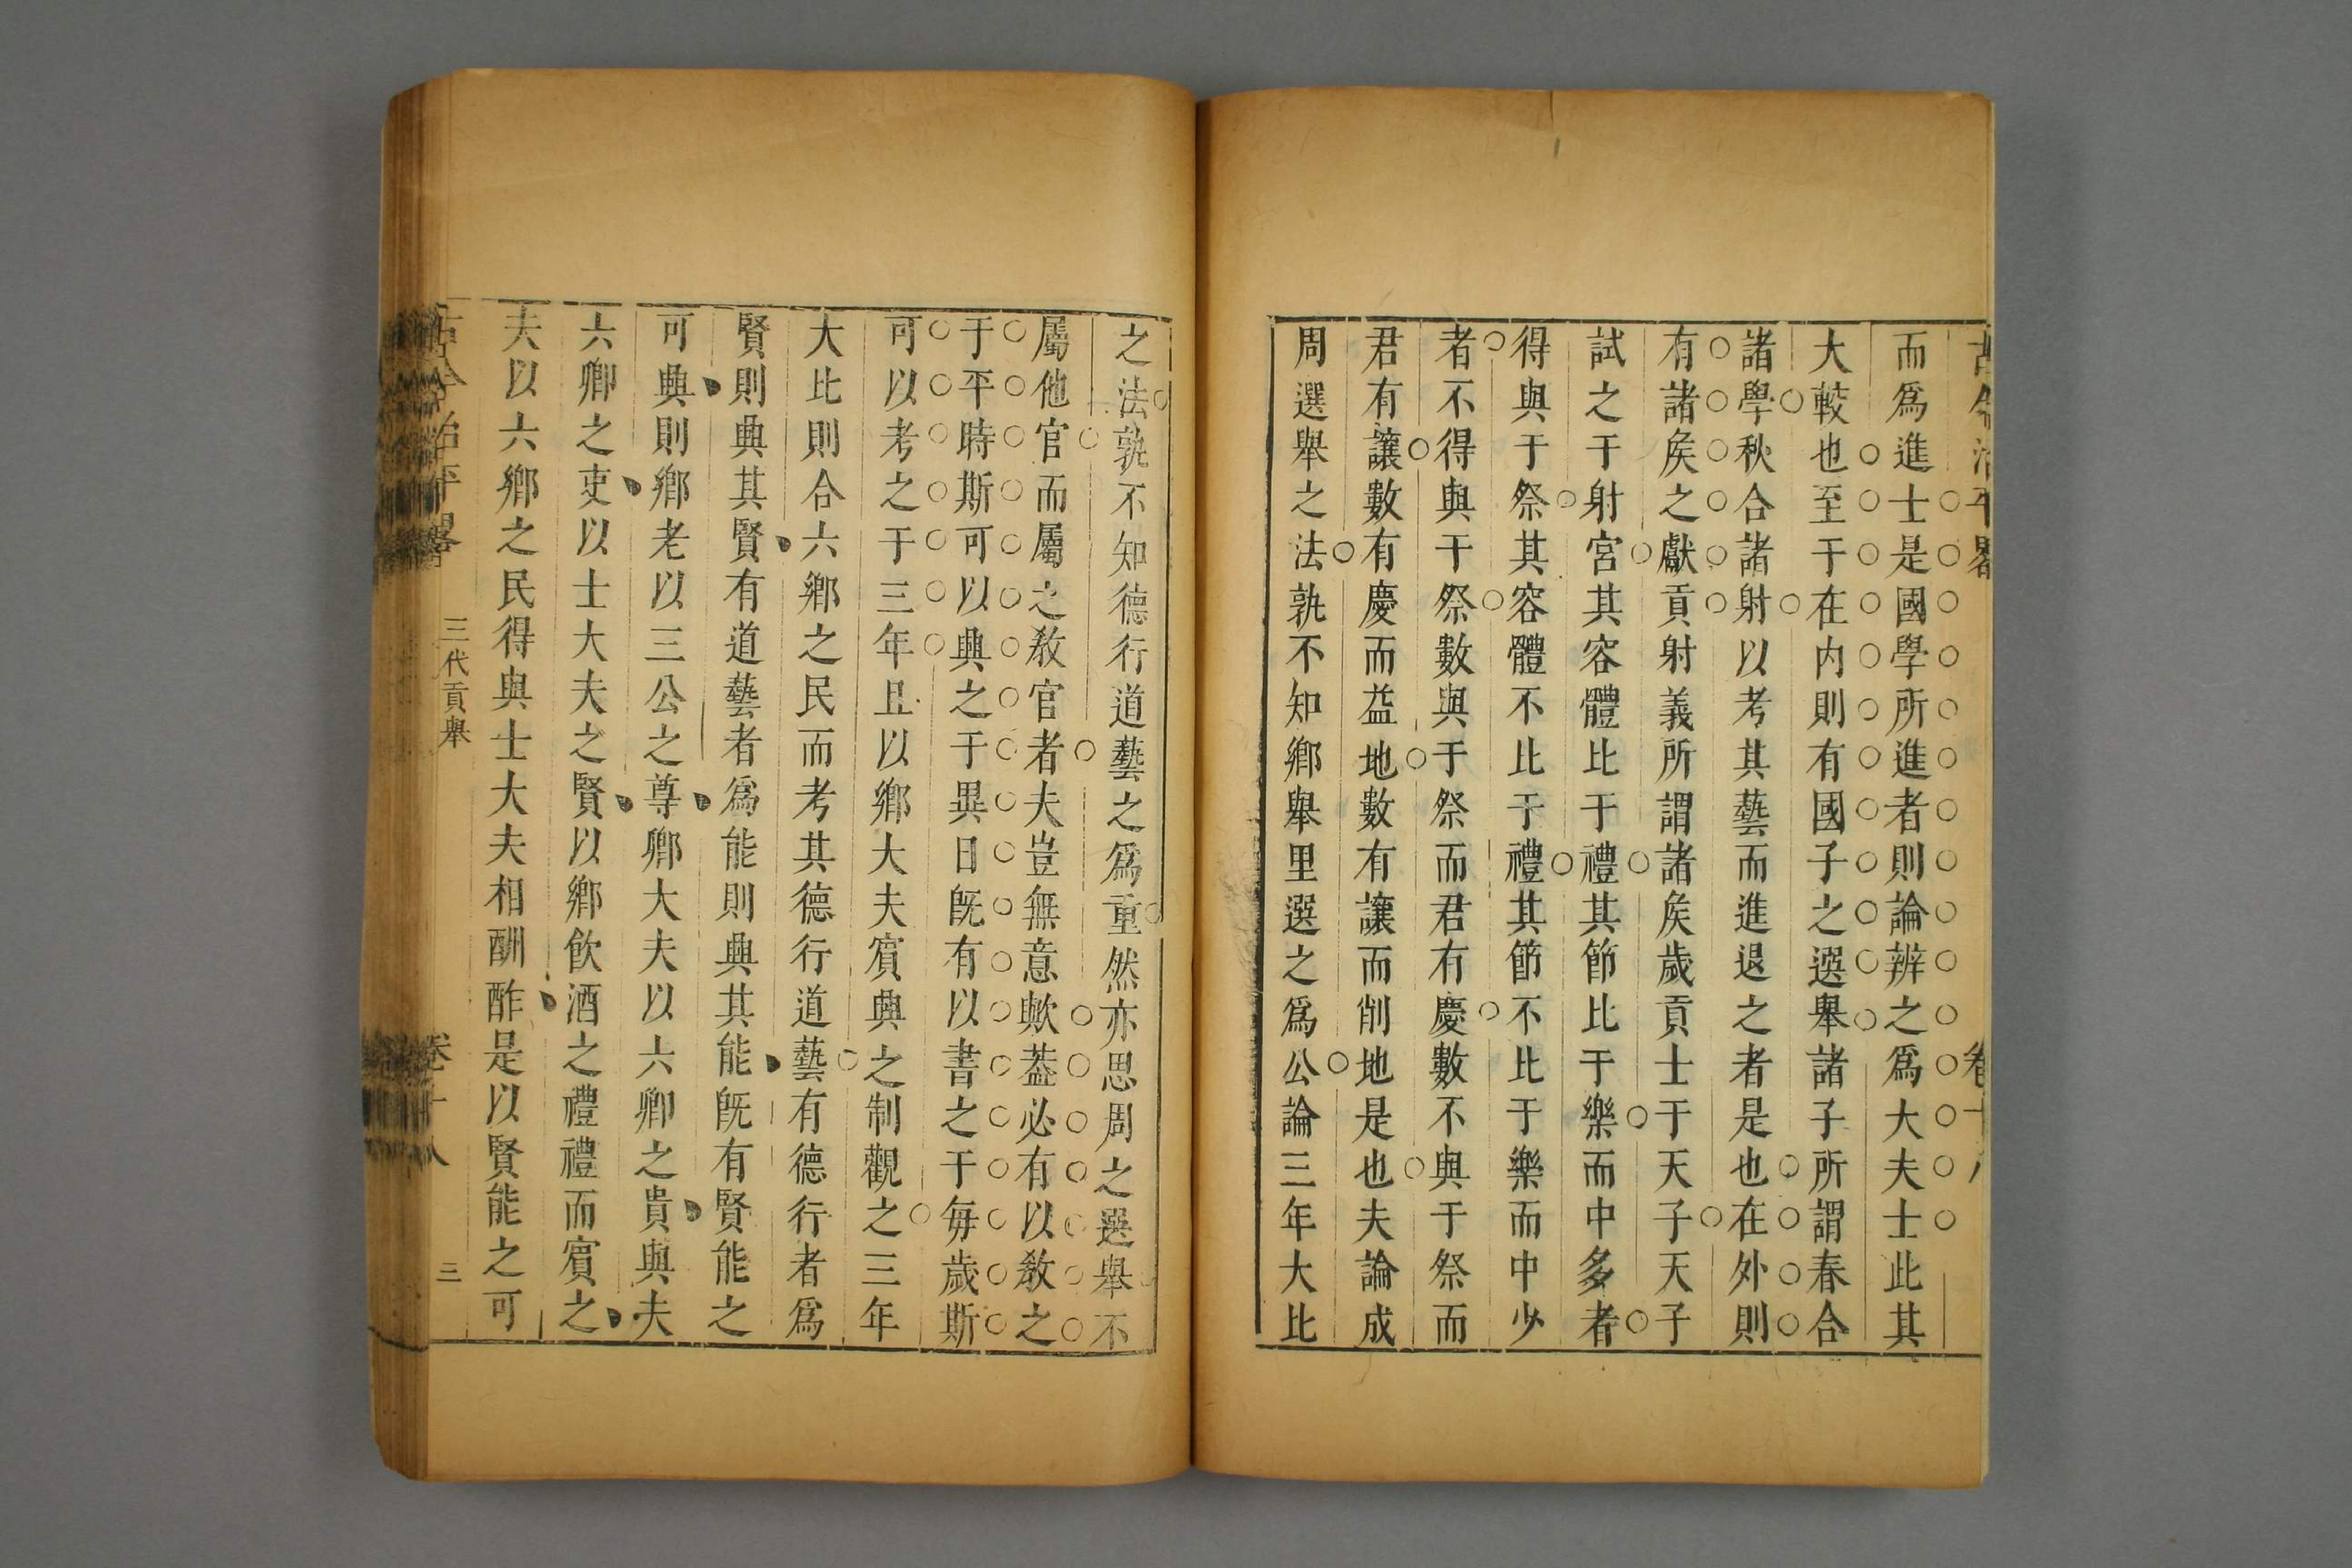 古今治平畧 卷十八
而爲進士是國學所進者則論辨之爲大夫士此其
大較也至于在内則有國子之選舉諸子所謂春合
諸學秋合諸射以考其藝而進退之者是也在外則
有諸矦之獻貢射義所謂諸矦歲貢士于天子天子
試之于射宮其容體比于禮其節比于樂而中多者
得與于祭其容體不比于禮其節不比于樂而中少
者不得與于祭數與于祭而君有慶數不與于祭而
君有讓數有慶而益地數有讓而削地是也夫論成
周選舉之法孰不知鄉舉里選之爲公論三年大比
之法孰不知德行道藝之爲重然亦思周之選舉不
屬他官而屬之敎官者夫豈無意歟葢必有以敎之
于平時斯可以興之于異日旣有以書之于每歲斯
可以考之于三年且以鄉大夫賓興之制觀之三年
大比則合六鄉之民而考其德行道藝有德行者爲
賢則興其賢有道藝者爲能則興其能旣有賢能之
可興則鄉老以三公之尊鄉大夫以六卿之貴與夫
六卿之吏以士大夫之賢以鄉飮酒之禮禮而賓之
夫以六鄉之民得與士大夫相酬酢是以賢能之可
古今治平畧 三代貢舉 卷十八 三